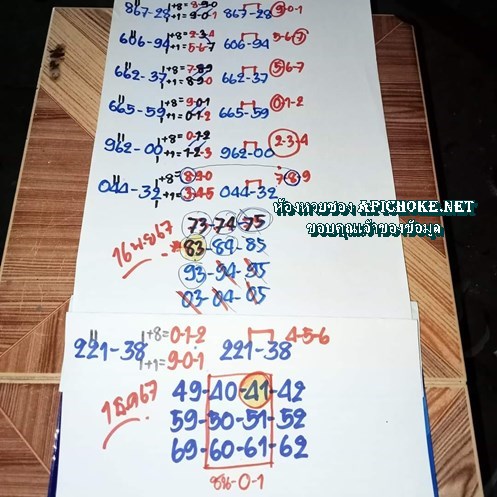 867-28 1+8=8-9-0 867-28 9-0-1
1+1=9-0-1
606-94 1+8=2-3-4 606-94 5-6-7
1+1=5-6-7
662-37 1+8=7-8-9 662-37 5-6-7
1+1=8-9-0
665-59 1+8=9-0-1 665-59 0-1-2
1+1=0-1-2
962-00 1+8=0-1-2 962-00 2-3-4
1+1=1-2-3
044-32 1+8=8-9-0 044-32 7-8-9
1+1=3-4-5
ห้องหวยซอง APICHOKE.NET
ขอบคุณเจ้าของข้อมูล
16 พย 67
73-74-75
83-84-85
93-94-95
03-04-05
221-38 1+8=0-1-2 221-38 4-5-6
1+1=9-0-1
1 ธค 67
49-40-41-42
59-50-51-52
69-60-61-62
-0-1